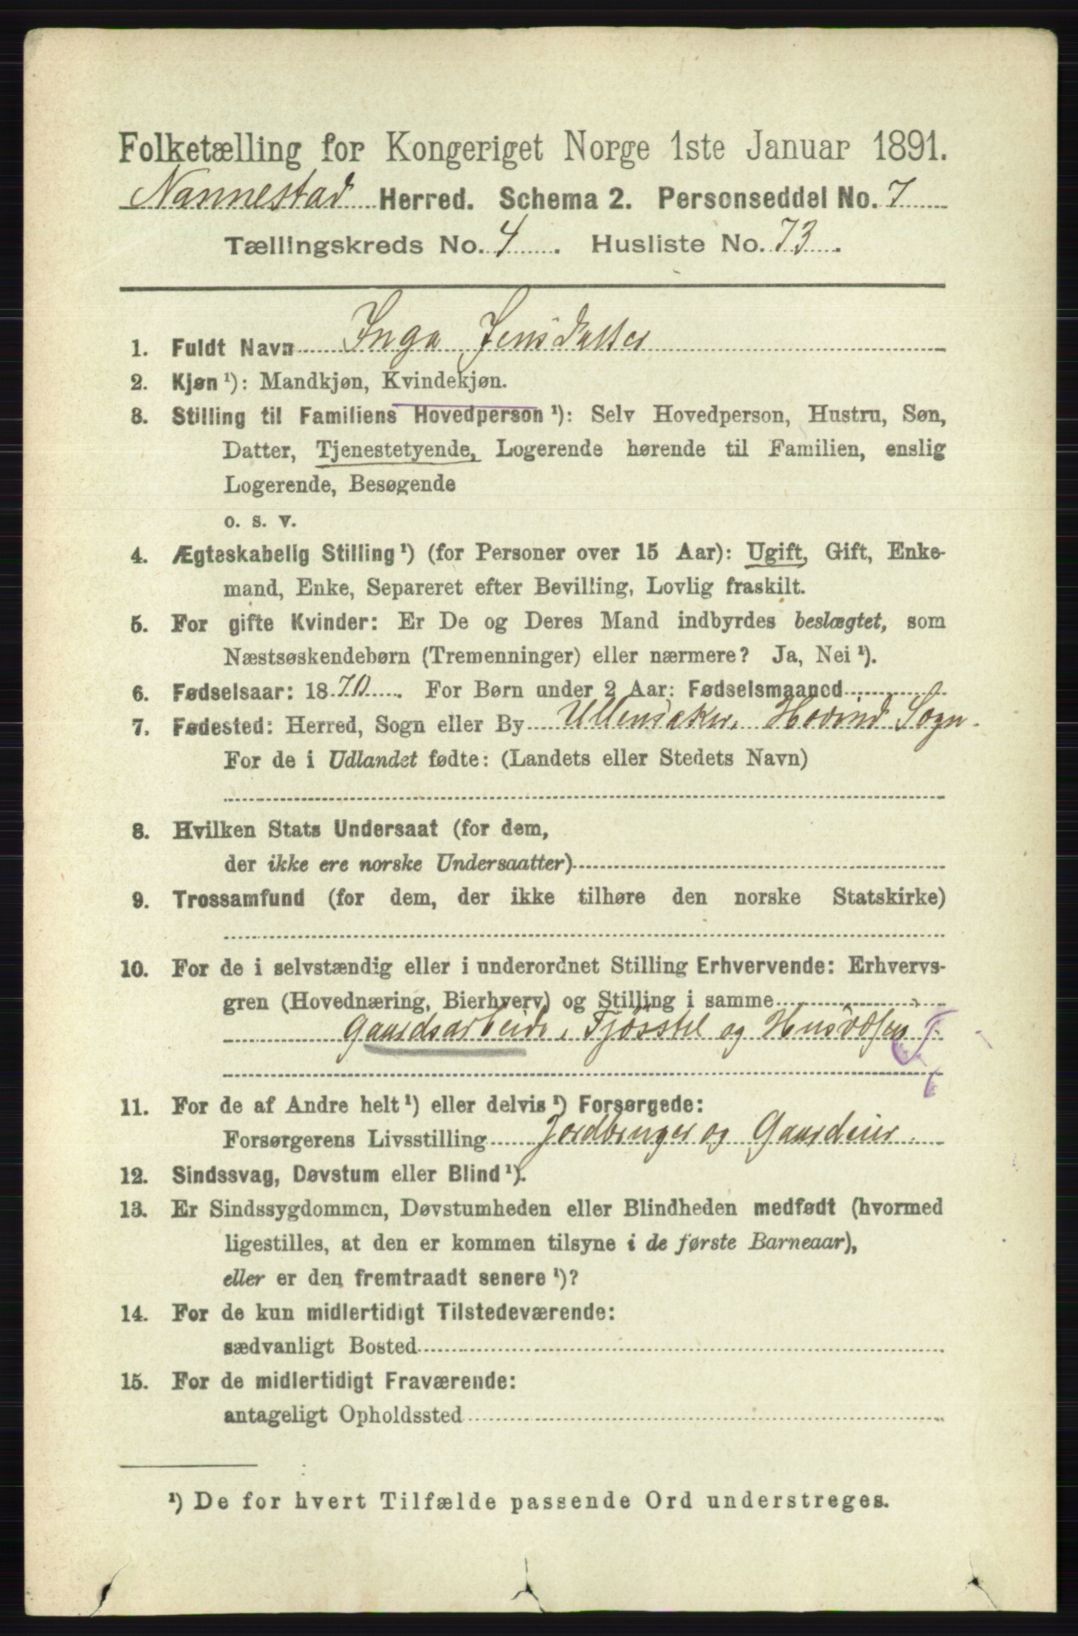 Folketælling for Kongeriget Norge 1ste Januar 1891.
Nannestad Herred. Schema 2. Personseddel No. 7
Tællingskreds No. 4. Husliste No. 73.
1. Fuldt Navn Inga Jensdatter
2. Kjøn ¹): Mandkjøn, Kvindekjøn.
3. Stilling til Familiens Hovedperson ¹): Selv Hovedperson, Hustru, Søn,
Datter, Tjenestetyende, Logerende hørende til Familien, enslig
Logerende, Besøgende
o. s. v.
4. Ægteskabelig Stilling ¹) (for Personer over 15 Aar): Ugift, Gift, Enke-
mand, Enke, Separeret efter Bevilling, Lovlig fraskilt.
5. For gifte Kvinder: Er De og Deres Mand indbyrdes beslægtet, som
Næstsøskendebørn (Tremenninger) eller nærmere? Ja, Nei ¹).
6. Fødselsaar: 1870. For Børn under 2 Aar: Fødselsmaaned
7. Fødested: Herred, Sogn eller By Ullensaker, Hovind Sogn.
For de i Udlandet fødte: (Landets eller Stedets Navn)
8. Hvilken Stats Undersaat (for dem,
der ikke ere norske Undersaatter)
9. Trossamfund (for dem, der ikke tilhøre den norske Statskirke)
10. For de i selvstændig eller i underordnet Stilling Erhvervende: Erhvervs-
gren (Hovednæring, Bierhverv) og Stilling i samme
Gaardsarbeide, Fjøsstel og
11. For de af Andre helt ¹) eller delvis ¹) Forsørgede:
Forsørgerens Livsstilling Jordbruger og Gaardeier.
12. Sindssvag, Døvstum eller Blind ¹).
13. Er Sindssygdommen, Døvstumheden eller Blindheden medfødt (hvormed
ligestilles, at den er kommen tilsyne i de første Barneaar),
eller er den fremtraadt senere ¹)?
14. For de kun midlertidigt Tilstedeværende:
sædvanligt Bosted
15. For de midlertidigt Fraværende:
antageligt Opholdssted
¹) De for hvert Tilfælde passende Ord understreges.